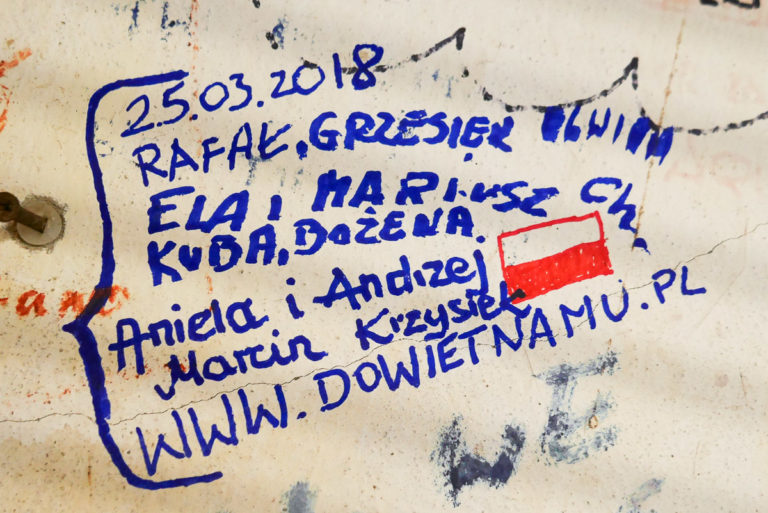 25.03.2018
RAFAŁ, GRZESIEK
ELA i MARIUSZ Ch.
KUBA, BOŻENA
Aniela i Andrzej
Marcin Krzysiek
WWW.DOWIETNAMU.PL
WE